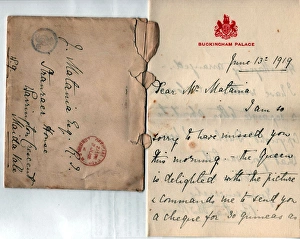 J. Matania Esq. R.I.
Stanraer House
49 Warrington Crescent
Maida Vale
BUCKINGHAM PALACE
June 13th 1919
Dear Mr Matania
I am so
sorry I have missed you
this morning - the Queen
is delighted with the picture
& commands me to send you
a cheque for 30 guineas as